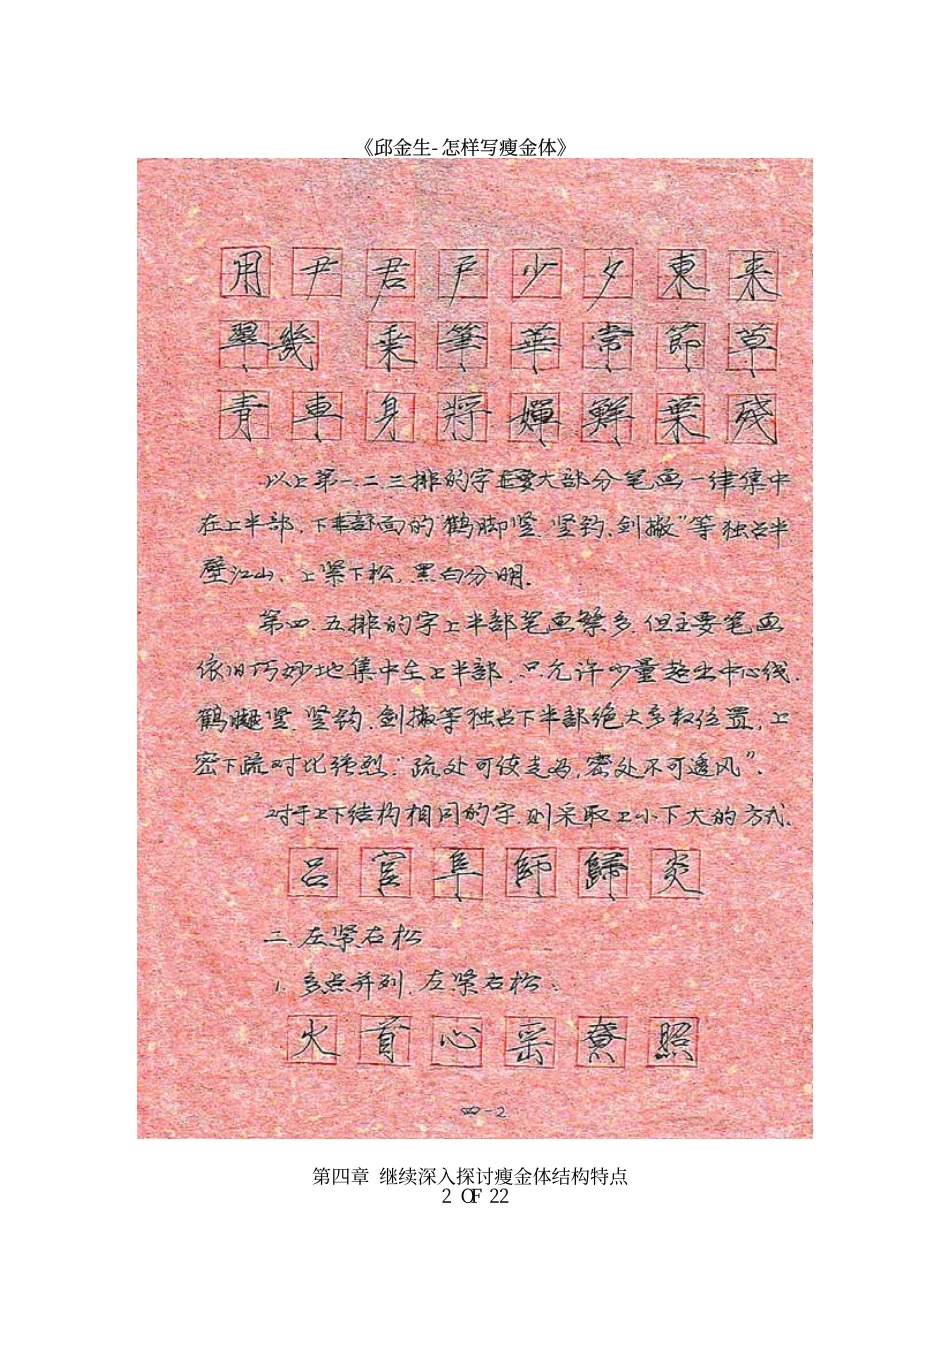 《邱金生-怎样写瘦金体》
用 尹 君 戸 少 夕 東 来
翠 幾 乘 筆 華 常 節 草
青 車 身 將 嬋 鮮 葉 殘
以上第一、二、三排的字主要大部分笔画一律集中
在上半部，下面的“鹤脚竖、竖钩、剑撇”等独占半
壁江山、上紧下松，黑白分明．
第四、五排的字上半部笔画繁多，但主要笔画
依旧巧妙地集中在上半部，只允许少量超出中心线．
鹤腿竖、竖钩、剑撇等独占下半部绝大多数位置，上
密下疏对比强烈：“疏处可使走马，密处不可透风”．
对于上下结构相同的字，则采取上小下大的方式．
吕 官 阜 師 歸 炎
二、左紧右松
1. 多点并列，左紧右松：
火 首 心 寮 照
四-2
第四章 继续深入探讨瘦金体结构特点
2 OF 22